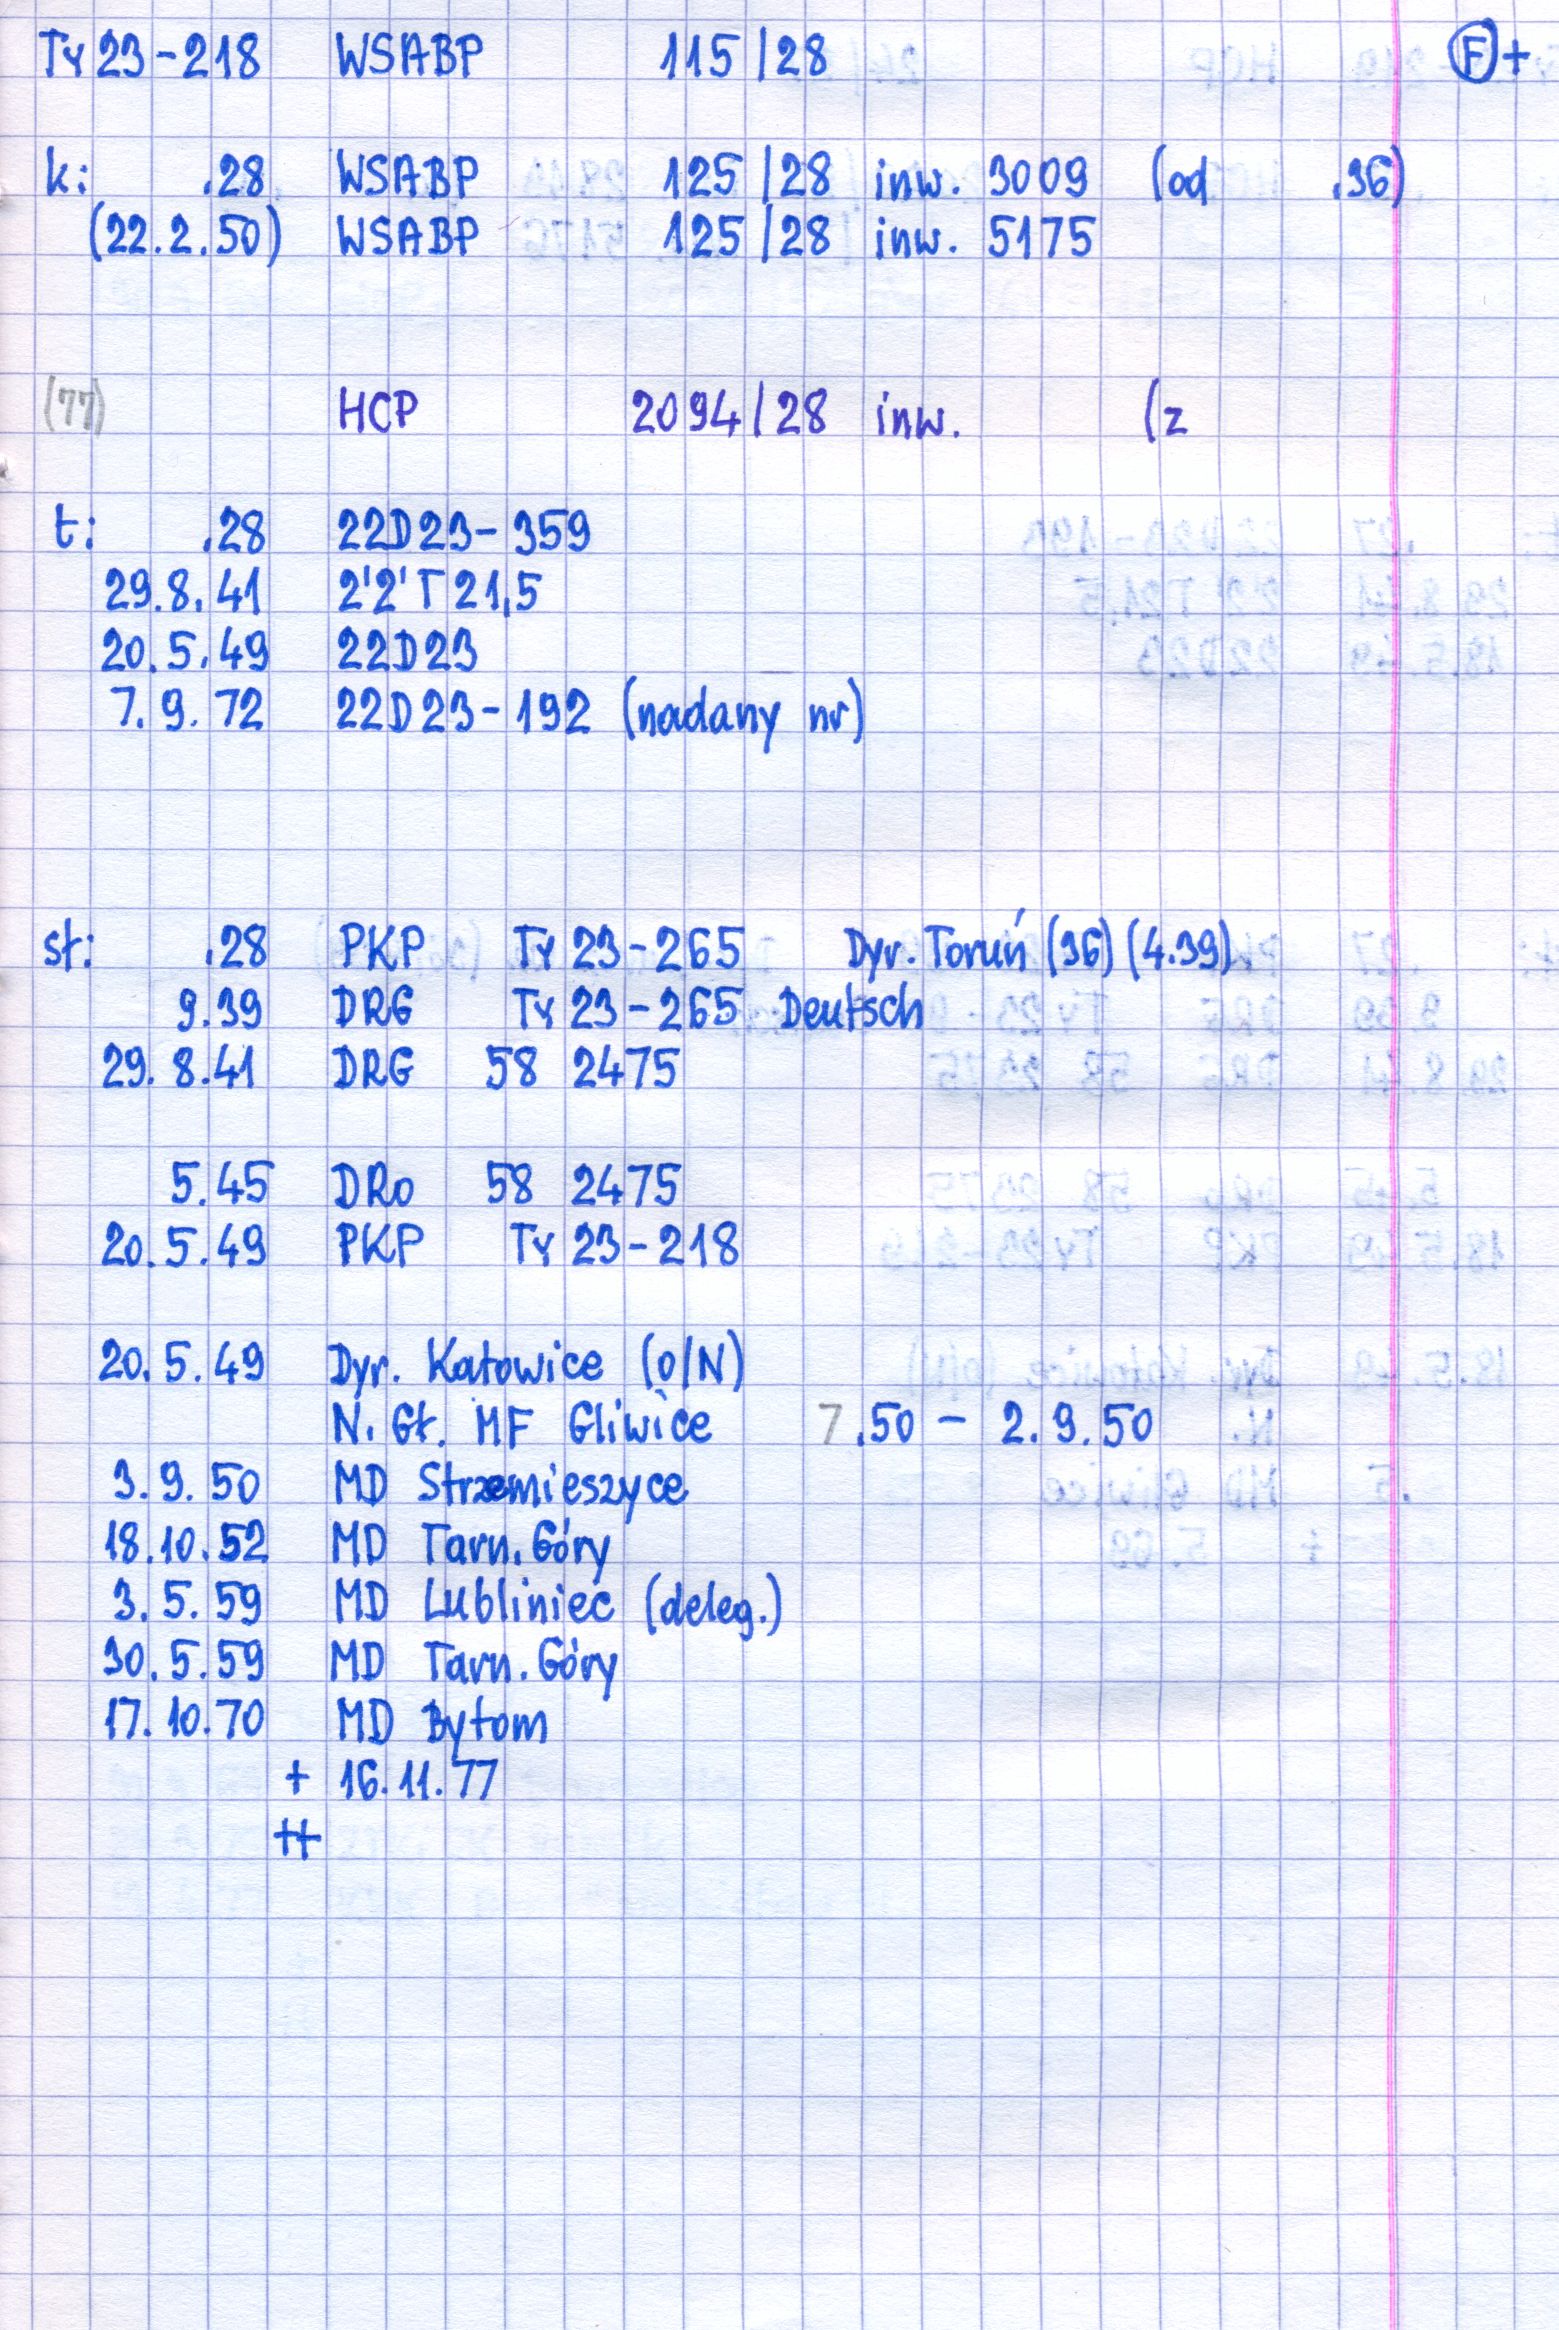 Ty 23-218 WSABP 115/28 F +
k: .28 WSABP 125/28 inw. 3009 (od .36)
(22.2.50) WSABP 125/28 inw. 5175
(77) HCP 2094/28 inw. (z
t: .28 22D23-359
29.8.41 2'2'T21,5
20.5.49 22D23
7.9.72 22D23-192 (nadany nr)
st: .28 PKP Ty 23-265 Dyr. Toruń (36) (4.39)
9.39 DRG Ty 23-265 Deutsch
29.8.41 DRG 58 2475
5.45 DRo 58 2475
20.5.49 PKP Ty 23-218
20.5.49 Dyr. Katowice (o/N)
N. Gł. MF Gliwice 7.50 - 2.9.50
3.9.50 MD Strzemieszyce
18.10.52 MD Tarn. Góry
3.5.59 MD Lubliniec (deleg.)
30.5.59 MD Tarn. Góry
17.10.70 MD Bytom
+ 16.11.77
++